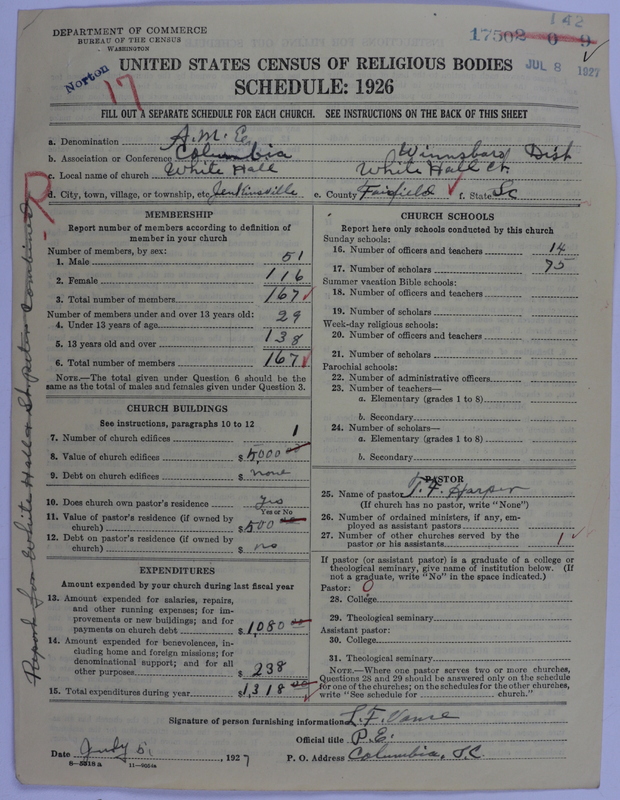 DEPARTMENT OF COMMERCE
BUREAU OF THE CENSUS
WASHINGTON
142
17502 0 9
JUL 8 1927
Norton
17
UNITED STATES CENSUS OF RELIGIOUS BODIES
SCHEDULE: 1926
FILL OUT A SEPARATE SCHEDULE FOR EACH CHURCH. SEE INSTRUCTIONS ON THE BACK OF THIS SHEET
a. Denomination A.M.E.
b. Association or Conference Columbia Winnsboro Dist
c. Local name of church White Hall White Hall Ct.
d. City, town, village, or township, etc. Jenkinsville e. County Fairfield f. State SC
R
Report for White Hall & Combined
MEMBERSHIP
Report number of members according to definition of member in your church
Number of members, by sex:
1. Male 51
2. Female 116
3. Total number of members 167
Number of members under and over 13 years old:
4. Under 13 years of age 29
5. 13 years old and over 138
6. Total number of members 167
NOTE.—The total given under Question 6 should be the same as the total of males and females given under Question 3.
CHURCH BUILDINGS
See instructions, paragraphs 10 to 12
7. Number of church edifices 1
8. Value of church edifices $5,000 00
9. Debt on church edifices $ none
10. Does church own pastor's residence yes
Yes or No
11. Value of pastor's residence (if owned by church) $500 00
12. Debt on pastor's residence (if owned by church) $ no
EXPENDITURES
Amount expended by your church during last fiscal year
13. Amount expended for salaries, repairs, and other running expenses; for improvements or new buildings; and for payments on church debt $1,080 00
14. Amount expended for benevolences, including home and foreign missions; for denominational support; and for all other purposes $ 238
15. Total expenditures during year $1,318 00
CHURCH SCHOOLS
Report here only schools conducted by this church
Sunday schools:
16. Number of officers and teachers 14
17. Number of scholars 75
Summer vacation Bible schools:
18. Number of officers and teachers
19. Number of scholars
Week-day religious schools:
20. Number of officers and teachers
21. Number of scholars
Parochial schools:
22. Number of administrative officers
23. Number of teachers—
a. Elementary (grades 1 to 8)
b. Secondary
24. Number of scholars—
a. Elementary (grades 1 to 8)
b. Secondary
PASTOR
25. Name of pastor T. F. Harper
(If church has no pastor, write "None")
26. Number of ordained ministers, if any, employed as assistant pastors
27. Number of other churches served by the pastor or his assistants 1
If pastor (or assistant pastor) is a graduate of a college or theological seminary, give name of institution below. (If not a graduate, write "No" in the space indicated.)
Pastor: 0
28. College
29. Theological seminary
Assistant pastor:
30. College
31. Theological seminary
NOTE.—Where one pastor serves two or more churches, Questions 28 and 29 should be answered only on the schedule for one of the churches; on the schedules for the other churches, write "See schedule for church."
Signature of person furnishing information L. F. Vance
Official title P.E.
Date July 5, 1927 P. O. Address Columbia, S.C.
8-5518a 11-9554a